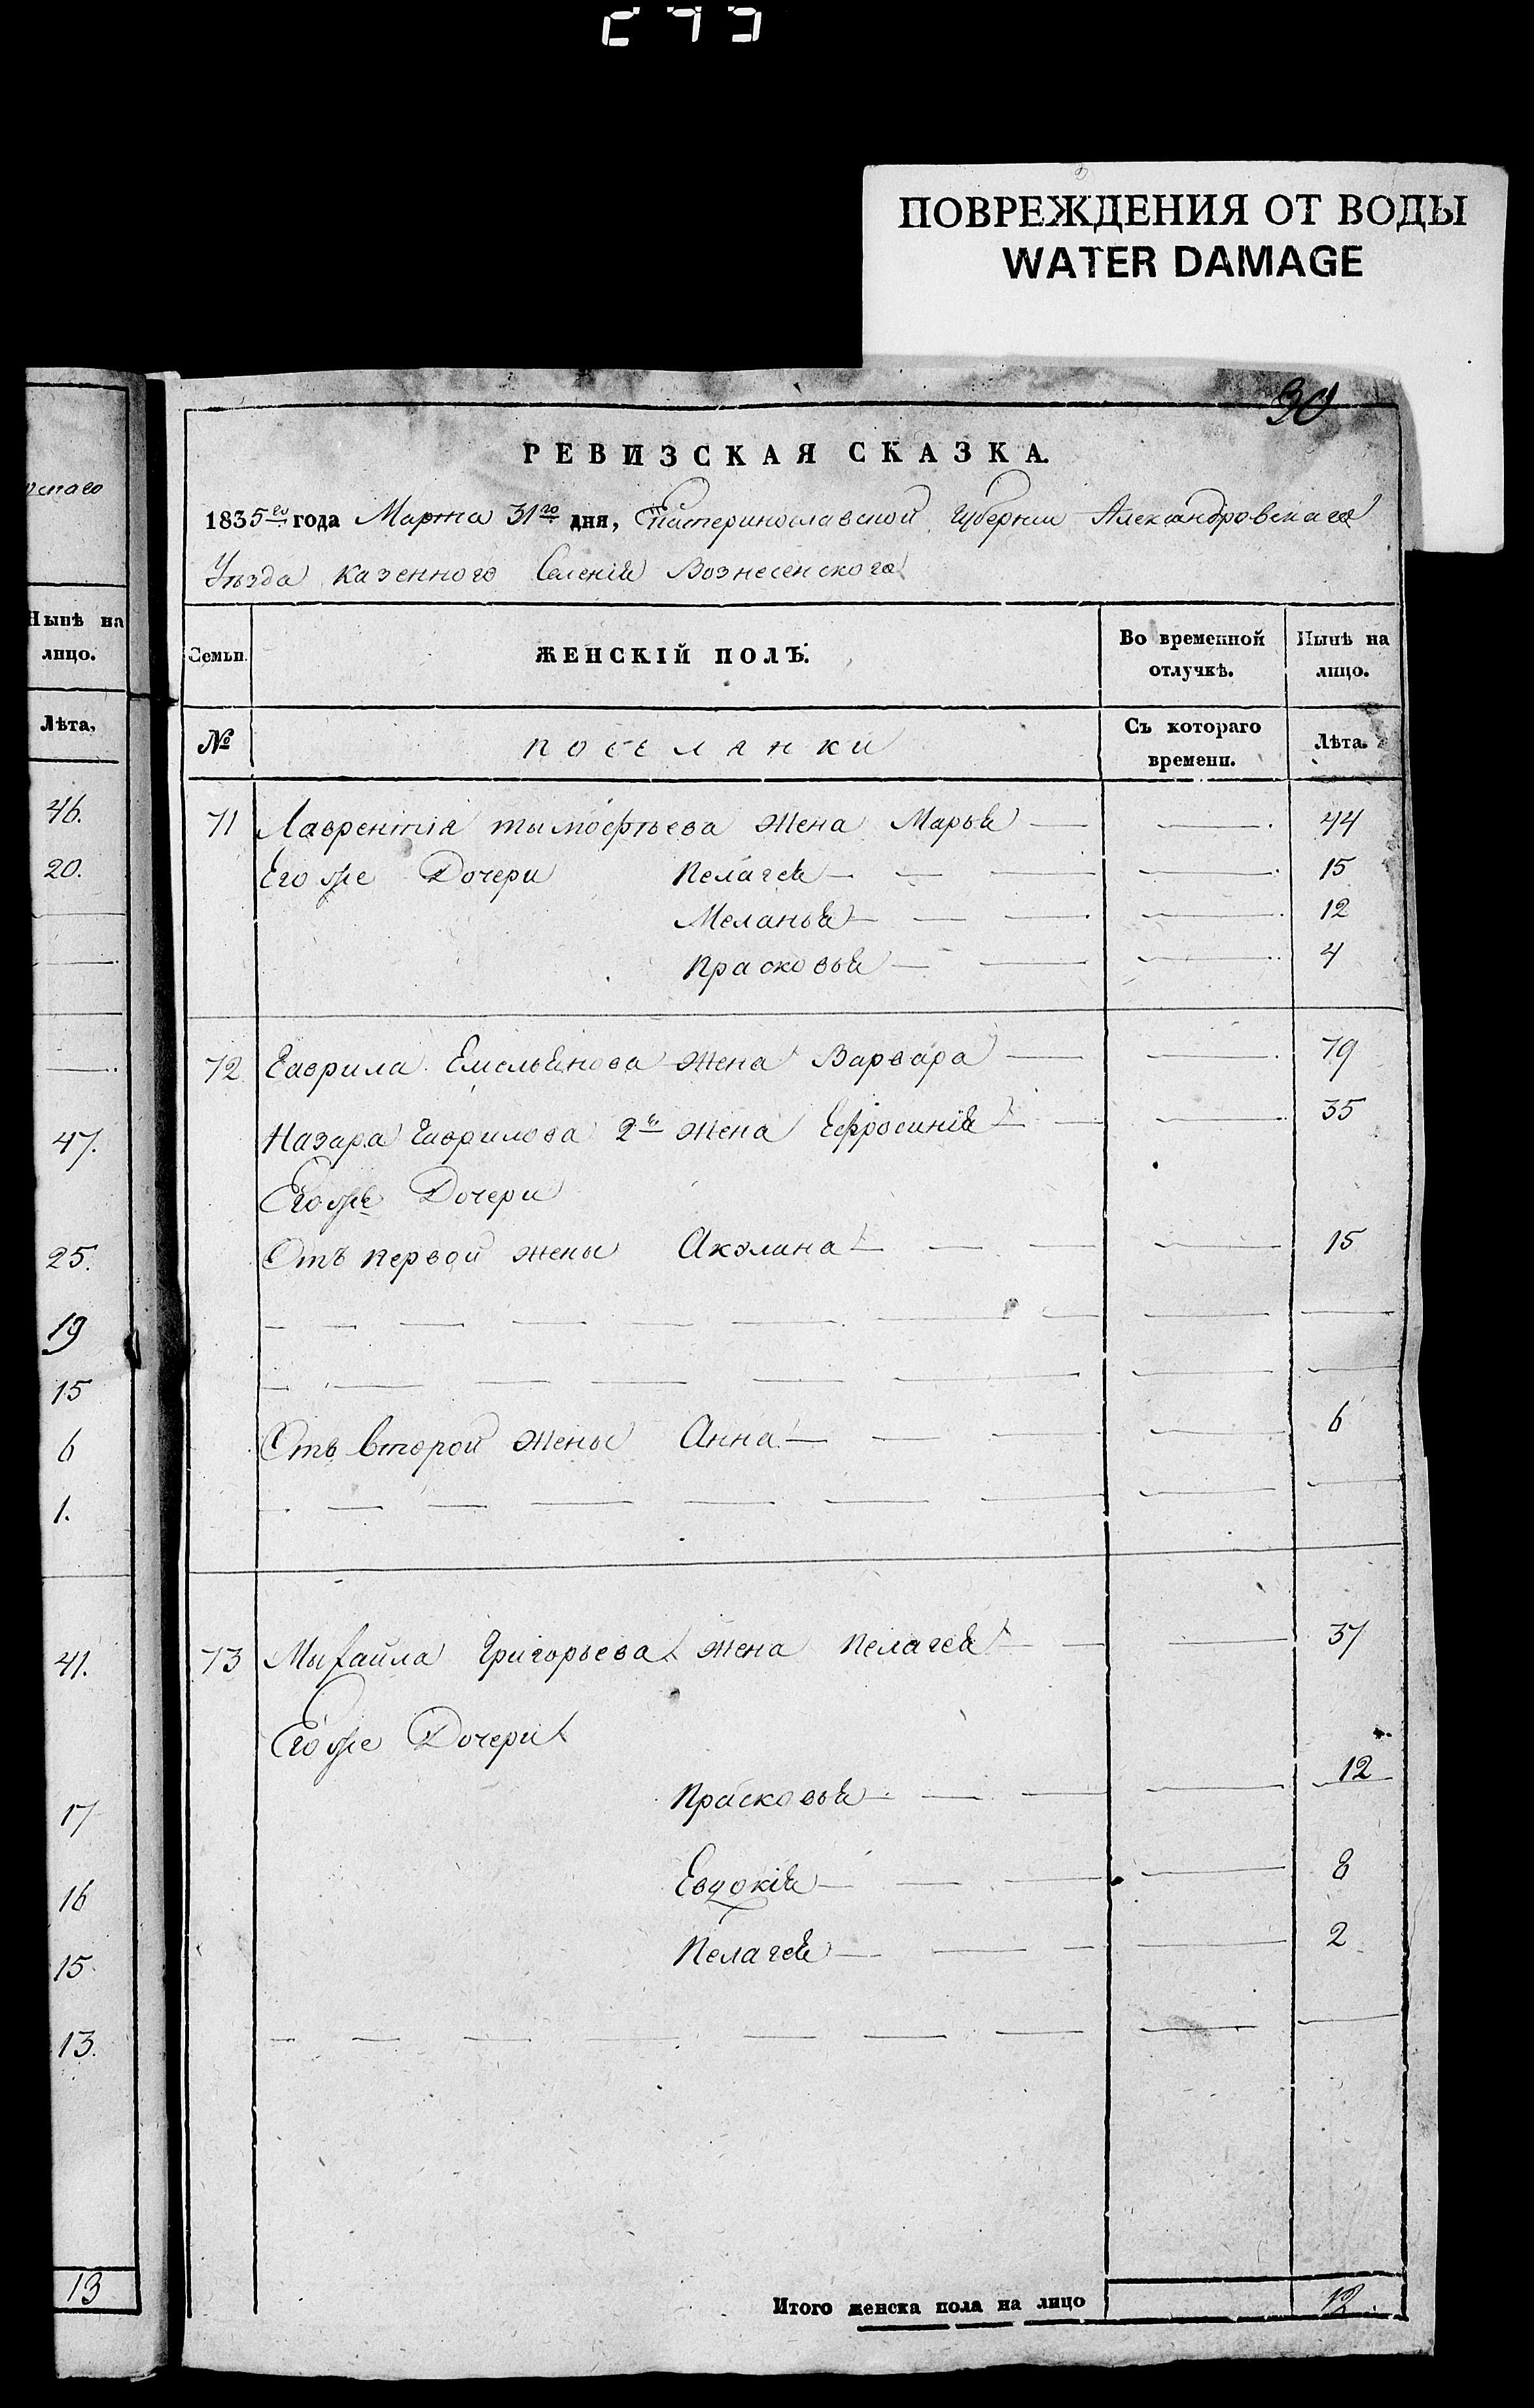 ПОВРЕЖДЕНИЯ ОТ ВОДЫ
WATER DAMAGE
30
РЕВИЗСКАЯ СКАЗКА.
1835го года Марта 31го дня, Екатеринославской Губернии Александровскаго
Уѣзда казенного Селенія Вознесенского
Семьи. ЖЕНСКІЙ ПОЛЪ. Во временной отлучкѣ. Нынѣ на лицо.
№ поселянки Съ котораго времени. Лѣта.
71 Лаврентія тымофѣева жена Марья 44
Его же Дочери Пелагея 15
Меланья 12
Прасковья 4
72 Гаврила Емельянова жена Варвара 79
Назара Гаврилова 2я жена Ефросинія 35
Его же Дочери
Отъ первой жены Акулина 15
Отъ второй жены Анна 6
73 Михайла Григорьева жена Пелагея 37
Его же Дочери
Прасковья 12
Евдокія 8
Пелагея 2
Итого женска пола на лицо 12
Нынѣ на
лицо.
Лѣта,
46.
20.
47.
25.
19
15
6
1.
41.
17
16
15
13.
13